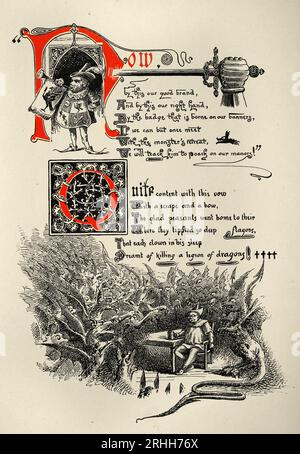 Now
By this our good brand,
And by this our right hand,
By the badge that is borne on our banners,
If we can but once meet
With this monster's retreat,
We will teach him to poach on our manors!"
Quite content with this vow
With a scrape and a bow,
The glad peasants went home to their
Where they tippled so deep flagons,
That each clown in his sleep
Dreamt of killing a legion of dragons!
alamy
Image ID: 2RHH76X
www.alamy.com